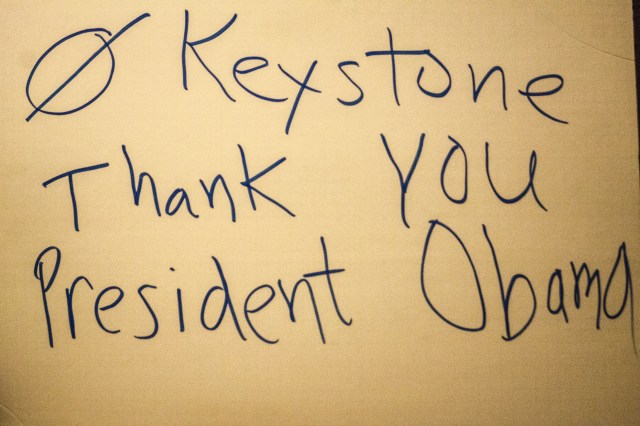 Ø Keystone
Thank you
President Obama